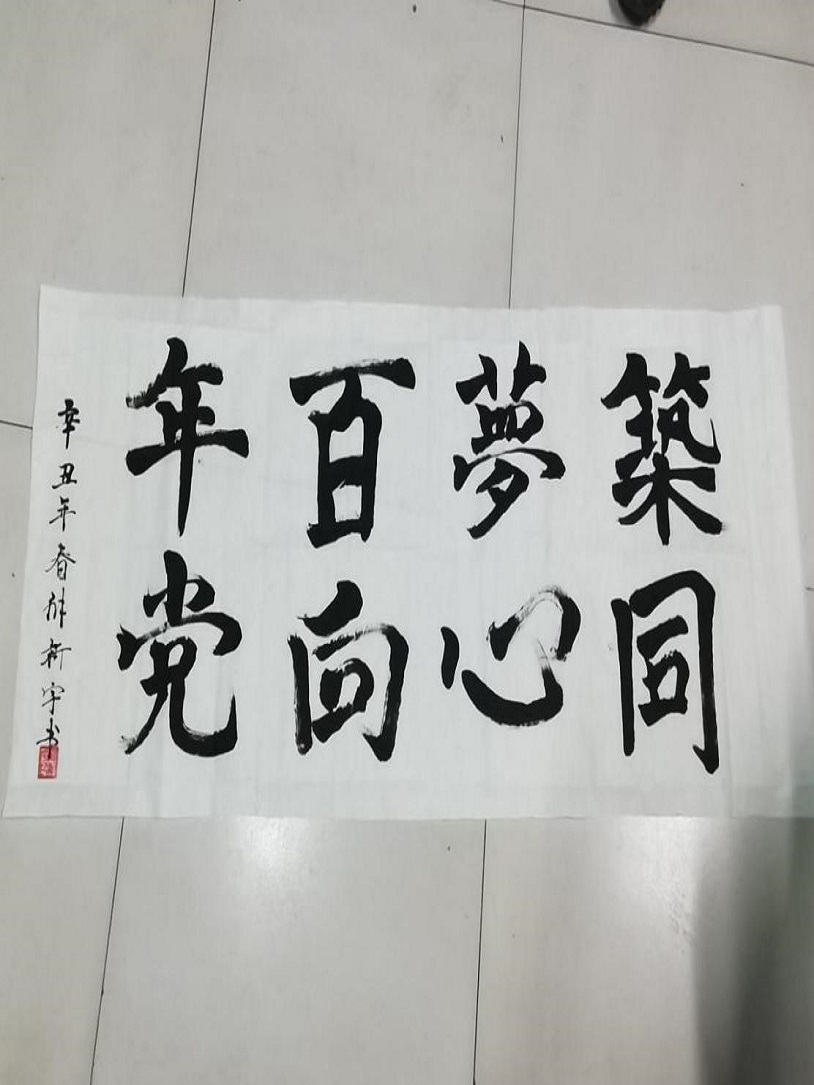 築夢百年
同心向党
辛丑年春新宇书